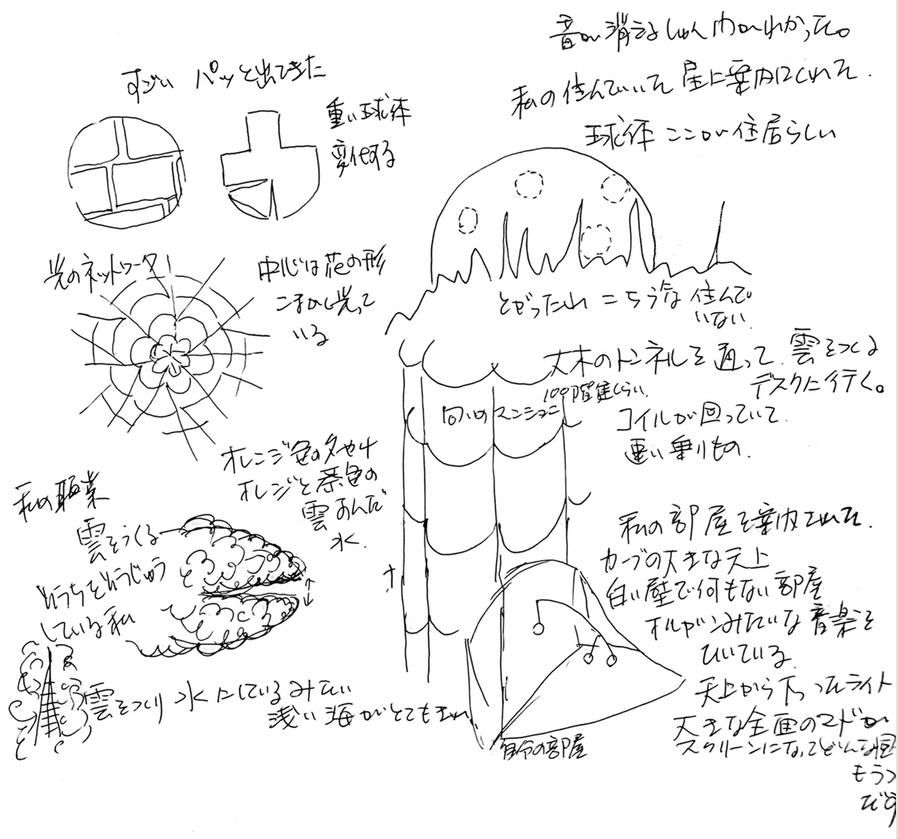 音が消えるしゅん内がわかった。
私の住んでいいた星に案内してくれた.
球体 ここが住居らしい
すごい パッと出てきた
重い球体
変化する
光のネットワーク!
中心は花の形
こまかく光って
いる
とがったれ こちらな 住んで
いない.
大木のトンネルを通って.雲をつくる
デスクに行く。
100階建くらい.
向いのマンション
コイルが回っていて
重い乗りもの.
オレンジ色の夕やけ
オレンジと茶色の
雲
水.
私の職業
雲をつくる
そうちをそうじゅう
している私
雲をつくり 水にしているみたい
浅い海がとてもきれ
私の部屋を案内てくれた.
カーブの大きな天上
白い壁で何もない部屋
オルガンみたいな音楽を
ひいている
天上から下ったライト
大きな全画のマドが
スクリーンになってどんな国
もうつ
だす
自分の部屋